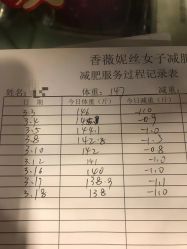 香薇妮丝女子减肥
减肥服务过程记录表
姓名: 体重: 147
日期 今日体重(斤) 今日减重(斤)
3.3 146 -1.0
3.4 -0.9
3.5 144.1 -1.0
3.8 142.8 -1.3
3.10 142 -0.8
3.12 141 -1.0
3.16 140 -1.0
3.17 138.9 -1.1
3.18 138